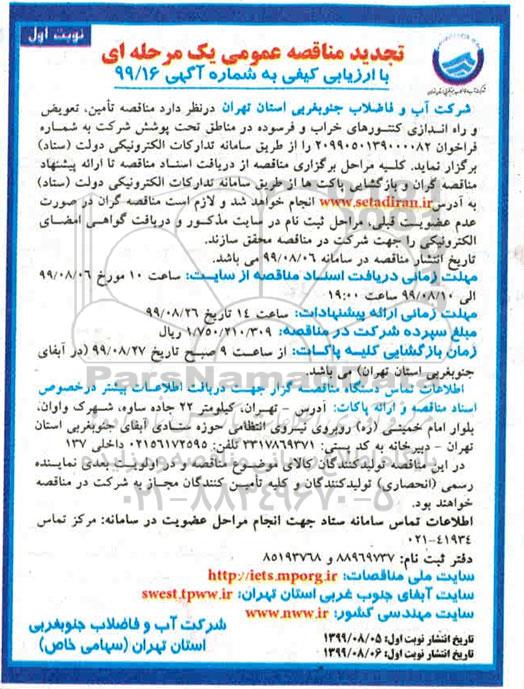 نوبت اول
تجدید مناقصه عمومی یک مرحله ای
با ارزیابی کیفی به شماره آگهی ۹۹/۱۶
شرکت آب و فاضلاب جنوبغربی استان تهران درنظر دارد مناقصه تأمین، تعویض
و راه اندازی کنتورهای خراب و فرسوده در مناطق تحت پوشش شرکت به شماره
فراخوان ۲۰۹۹۰۰۵۰۱۳۹۰۰۰۰۸۲ را از طریق سامانه تدارکات الکترونیکی دولت (ستاد)
برگزار نماید. کلیه مراحل برگزاری مناقصه از دریافت اسناد مناقصه تا ارائه پیشنهاد
مناقصه گران و بازگشایی پاکت ها از طریق سامانه تدارکات الکترونیکی دولت (ستاد)
به آدرس www.setadiran.ir انجام خواهد شد و لازم است مناقصه گران در صورت
عدم عضویت قبلی، مراحل ثبت نام در سایت مذکور و دریافت گواهی امضای
الکترونیکی را جهت شرکت در مناقصه محقق سازند.
تاریخ انتشار مناقصه در سامانه ۹۹/۰۸/۰۶ می باشد.
مهلت زمانی دریافت اسناد مناقصه از سایت: ساعت ۱۰ مورخ ۹۹/۰۸/۰۶
الی ۹۹/۰۸/۱۰ ساعت ۱۹:۰۰
مهلت زمانی ارائه پیشنهادات: ساعت ۱۴ تاریخ ۹۹/۰۸/۲۶
مبلغ سپرده شرکت در مناقصه: ۱/۷۵۰/۲۱۰/۳۰۹ ریال
زمان بازگشایی کلیه پاکات: از ساعت ۹ صبح تاریخ ۹۹/۰۸/۲۷ (در آبفای
جنوبغربی استان تهران) می باشد.
اطلاعات تماس دستگاه مناقصه گزار جهت دریافت اطلاعات بیشتر درخصوص
اسناد مناقصه و ارائه پاکات: آدرس - تهران، کیلومتر ۲۲ جاده ساوه، شهرک واوان،
بلوار امام خمینی (ره) روبروی نیروی انتظامی حوزه ستادی آبفای جنوبغربی استان
تهران - دبیرخانه به کد پستی: ۳۳۱۷۸۶۹۳۷۱ تلفن: ۰۲۱۵۶۱۷۲۵۹۵ داخلی ۱۳۷
در این مناقصه تولیدکنندگان کالای موضوع مناقصه و در اولویت بعدی نماینده
رسمی (انحصاری) تولیدکنندگان و کلیه تأمین کنندگان مجاز به شرکت در مناقصه
خواهند بود.
اطلاعات تماس سامانه ستاد جهت انجام مراحل عضویت در سامانه: مرکز تماس
۰۲۱-۴۱۹۳۴
دفتر ثبت نام: ۸۸۹۶۹۷۳۷ و ۸۵۱۹۳۷۶۸
سایت ملی مناقصات: http://iets.mporg.ir
سایت آبفای جنوب غربی استان تهران: swest.tpww.ir
سایت مهندسی کشور: www.nww.ir
تاریخ انتشار نوبت اول: ۱۳۹۹/۰۸/۰۵
تاریخ انتشار نوبت اول: ۱۳۹۹/۰۸/۰۶
شرکت آب و فاضلاب جنوبغربی
استان تهران (سهامی خاص)
ParsNamadData
۰۲۱-۸۸۳۴۹۶۷۰-۵